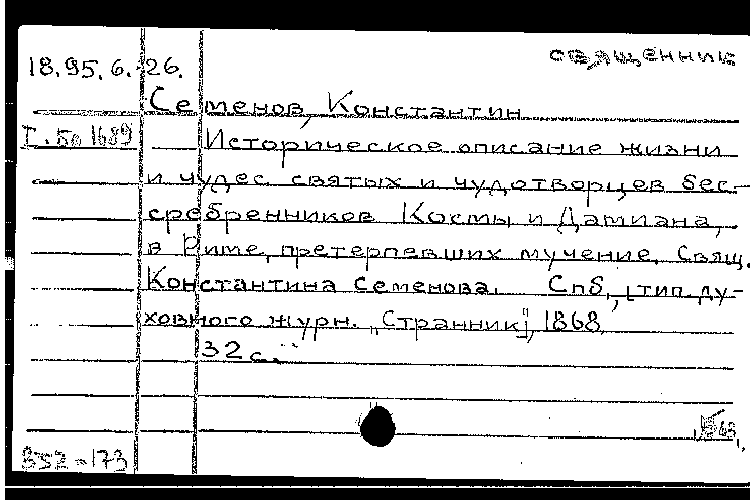 священник
18.95.6.26.
Семенов, Константин
I. Бо 1689 Историческое описание жизни
и чудес святых и чудотворцев бес-
сребренников Космы и Дамиана,
в Риме, претерпевших мучение. Свящ.
Константина Семенова. Спб., [тип. ду-
ховного журн. "Странник"], 1868.
32 с.
352-173